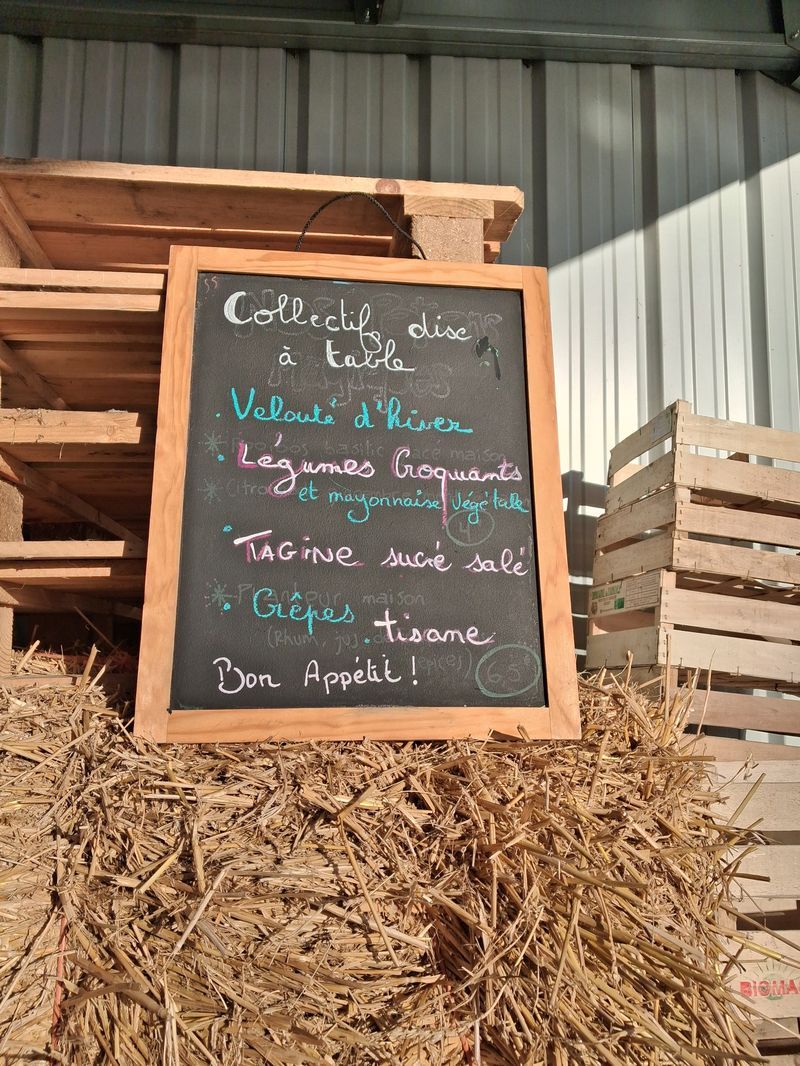 Collectif disc
à table
. Velouté d'hiver
. Légumes Croquants
et mayonnaise végétale
4
. TAGINE sucré salé
. Crêpes . tisane
maison
(Rhum, jus de
épices) 6,5
Bon Appétit !
BIOMA